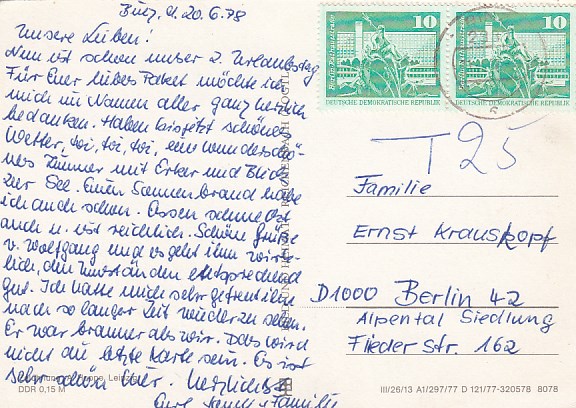 20.6.78
Unsere Lieben!
Nun ist schon unser 2. Urlaubstag
Für Euer liebes Paket möchte ich
mich im Namen aller ganz herzlich
bedanken. Haben bis jetzt schönes
Wetter, toi, toi, toi, ein wunderschö-
nes Zimmer mit Erker und Blick
zur See. Einen Sonnenbrand habe
ich auch schon. Essen schmeckt
auch u. ist reichlich. Schöne Grüße
v. Wolfgang und es geht ihm wirk-
lich, den Umständen entsprechend
gut. Ich hatte mich sehr gefreut ihn
nach so langer Zeit wieder zu sehen.
Er war brauner als wir. Das wird
nicht die letzte Karte sein. Es ist
sehr schön hier. Herzlichst
Eure Familie
Leipzig
DDR 0,15 M
10
10
DEUTSCHE DEMOKRATISCHE REPUBLIK
DEUTSCHE DEMOKRATISCHE REPUBLIK
T 25
Familie
Ernst Krauskopf
D1000 Berlin 42
Alpental Siedlung
Flieder Str. 162
III/26/13 A1/297/77 D 121/77-320578 8078